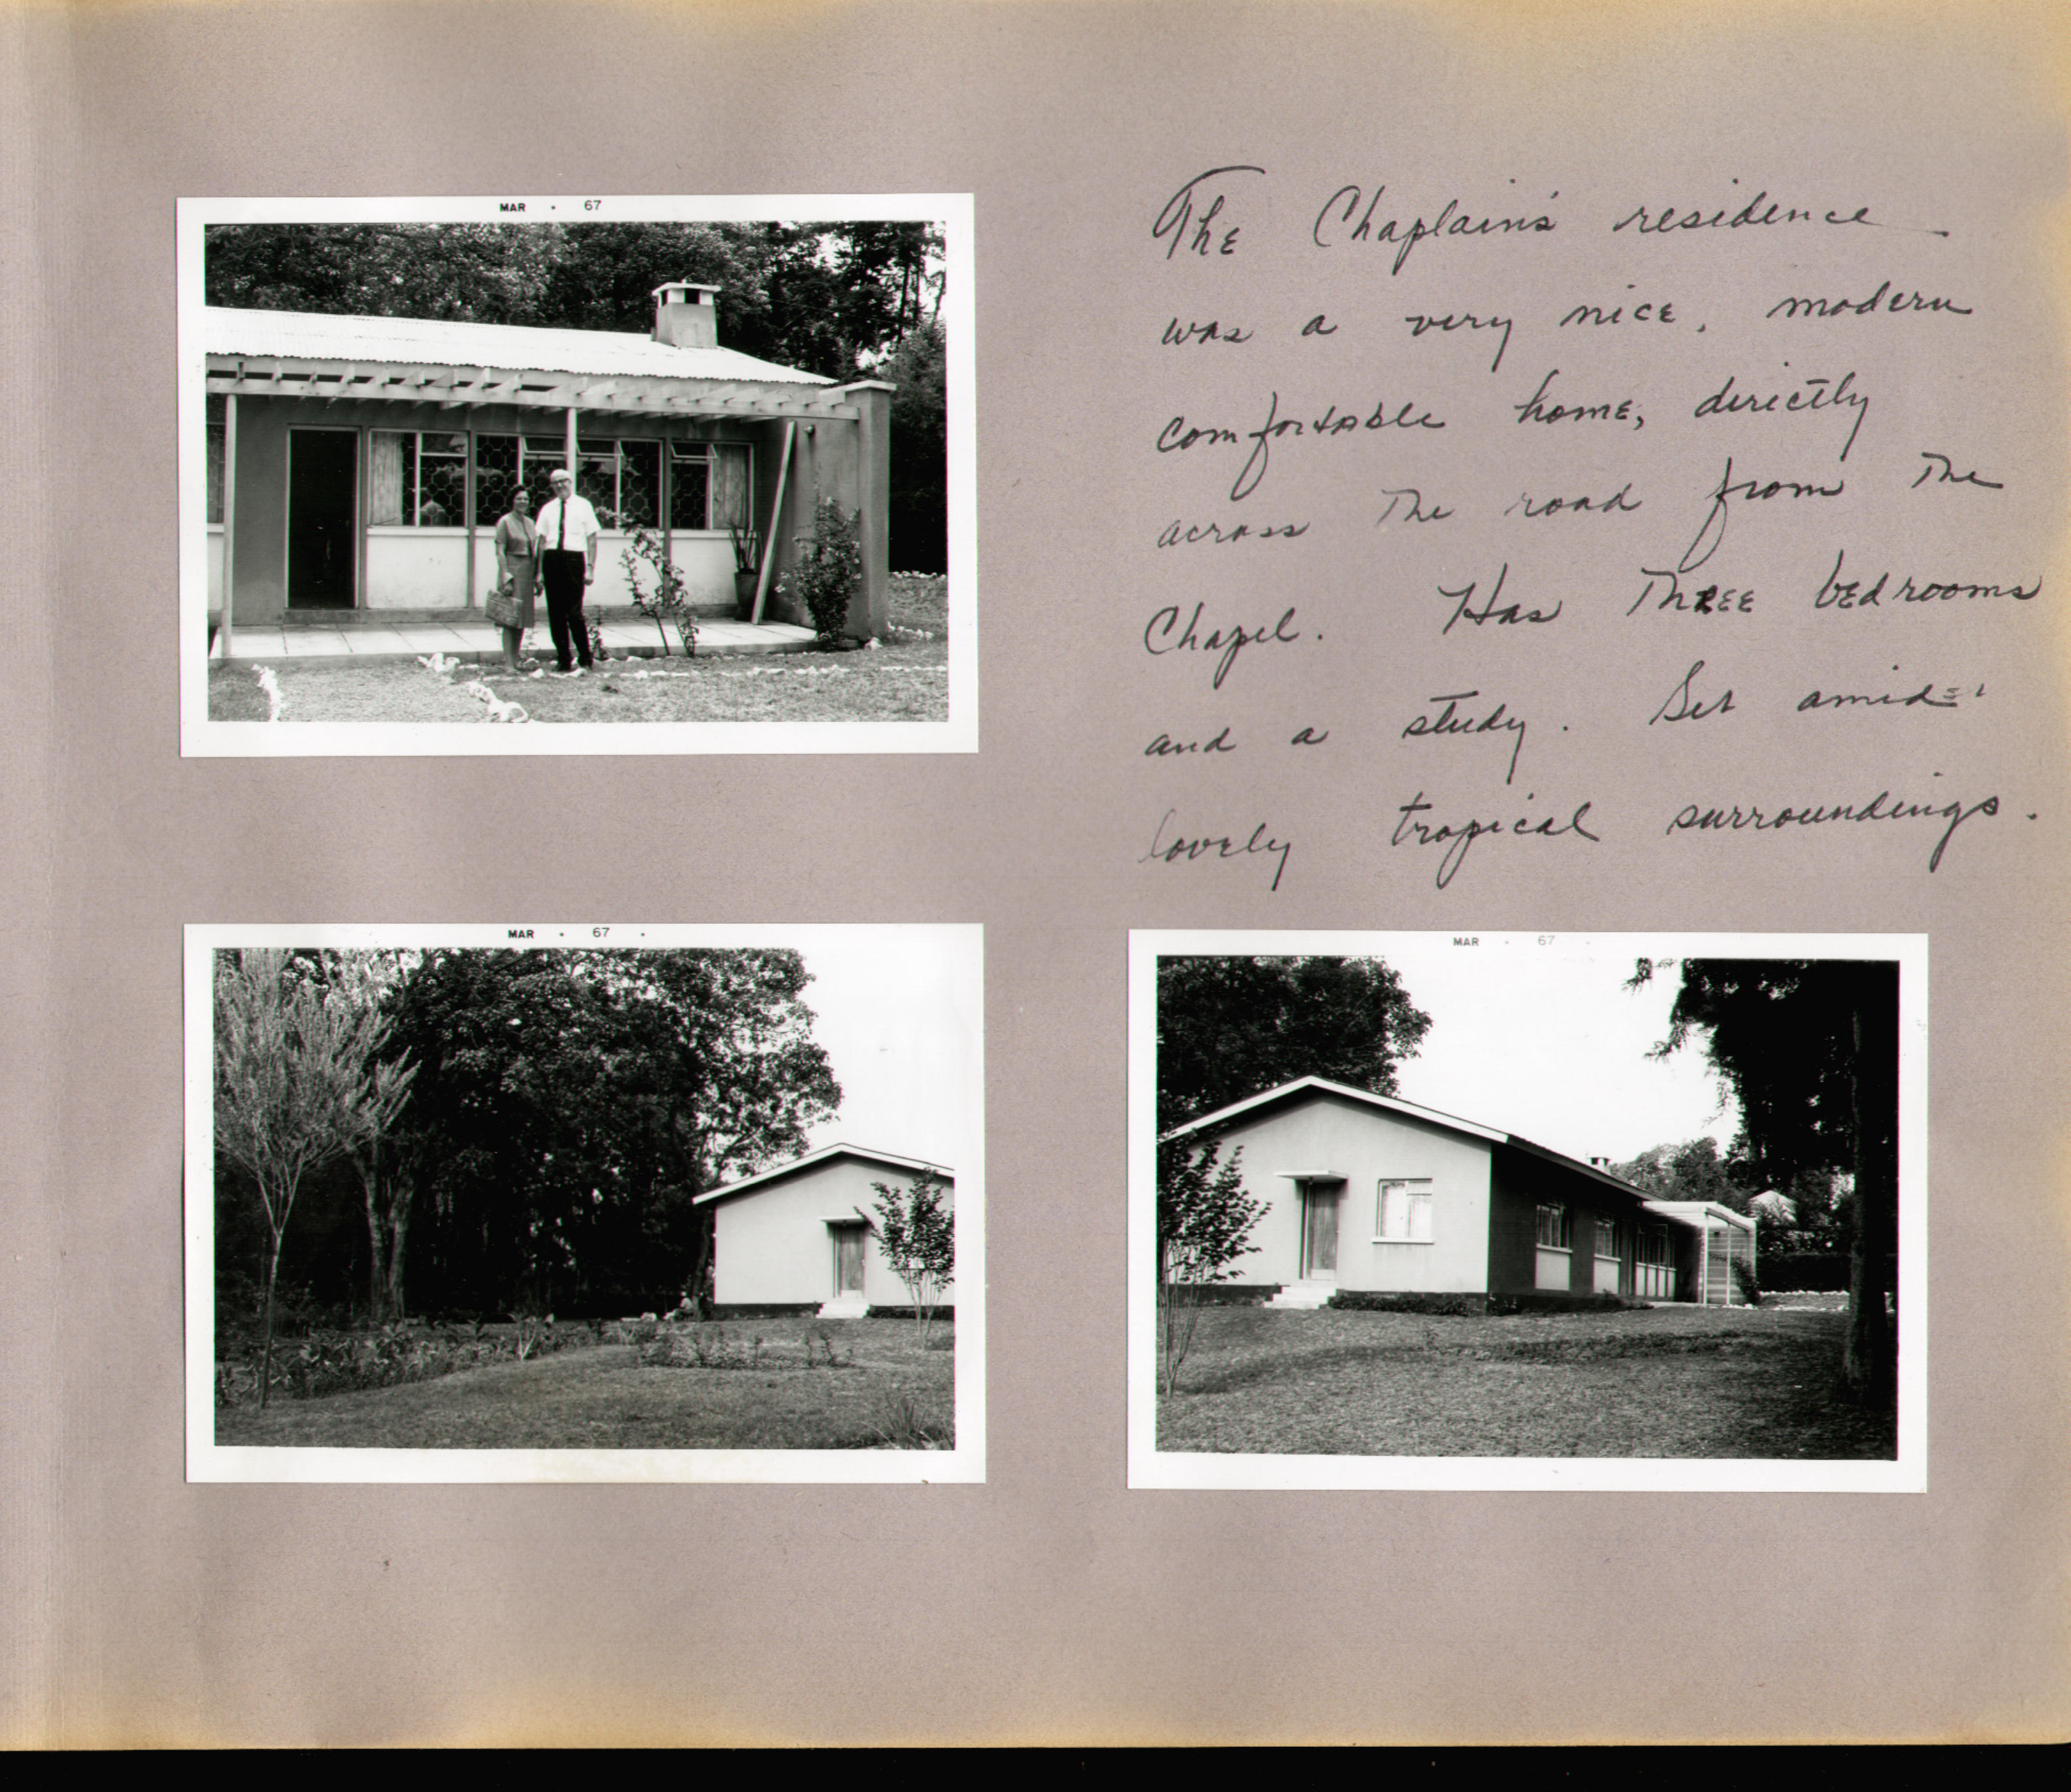 MAR • 67
The Chaplain's residence
was a very nice, modern
comfortable home, directly
across the road from the
Chapel. Has three bedrooms
and a study. Set amid
lovely tropical surroundings.
MAR • 67 •
MAR • 67 •